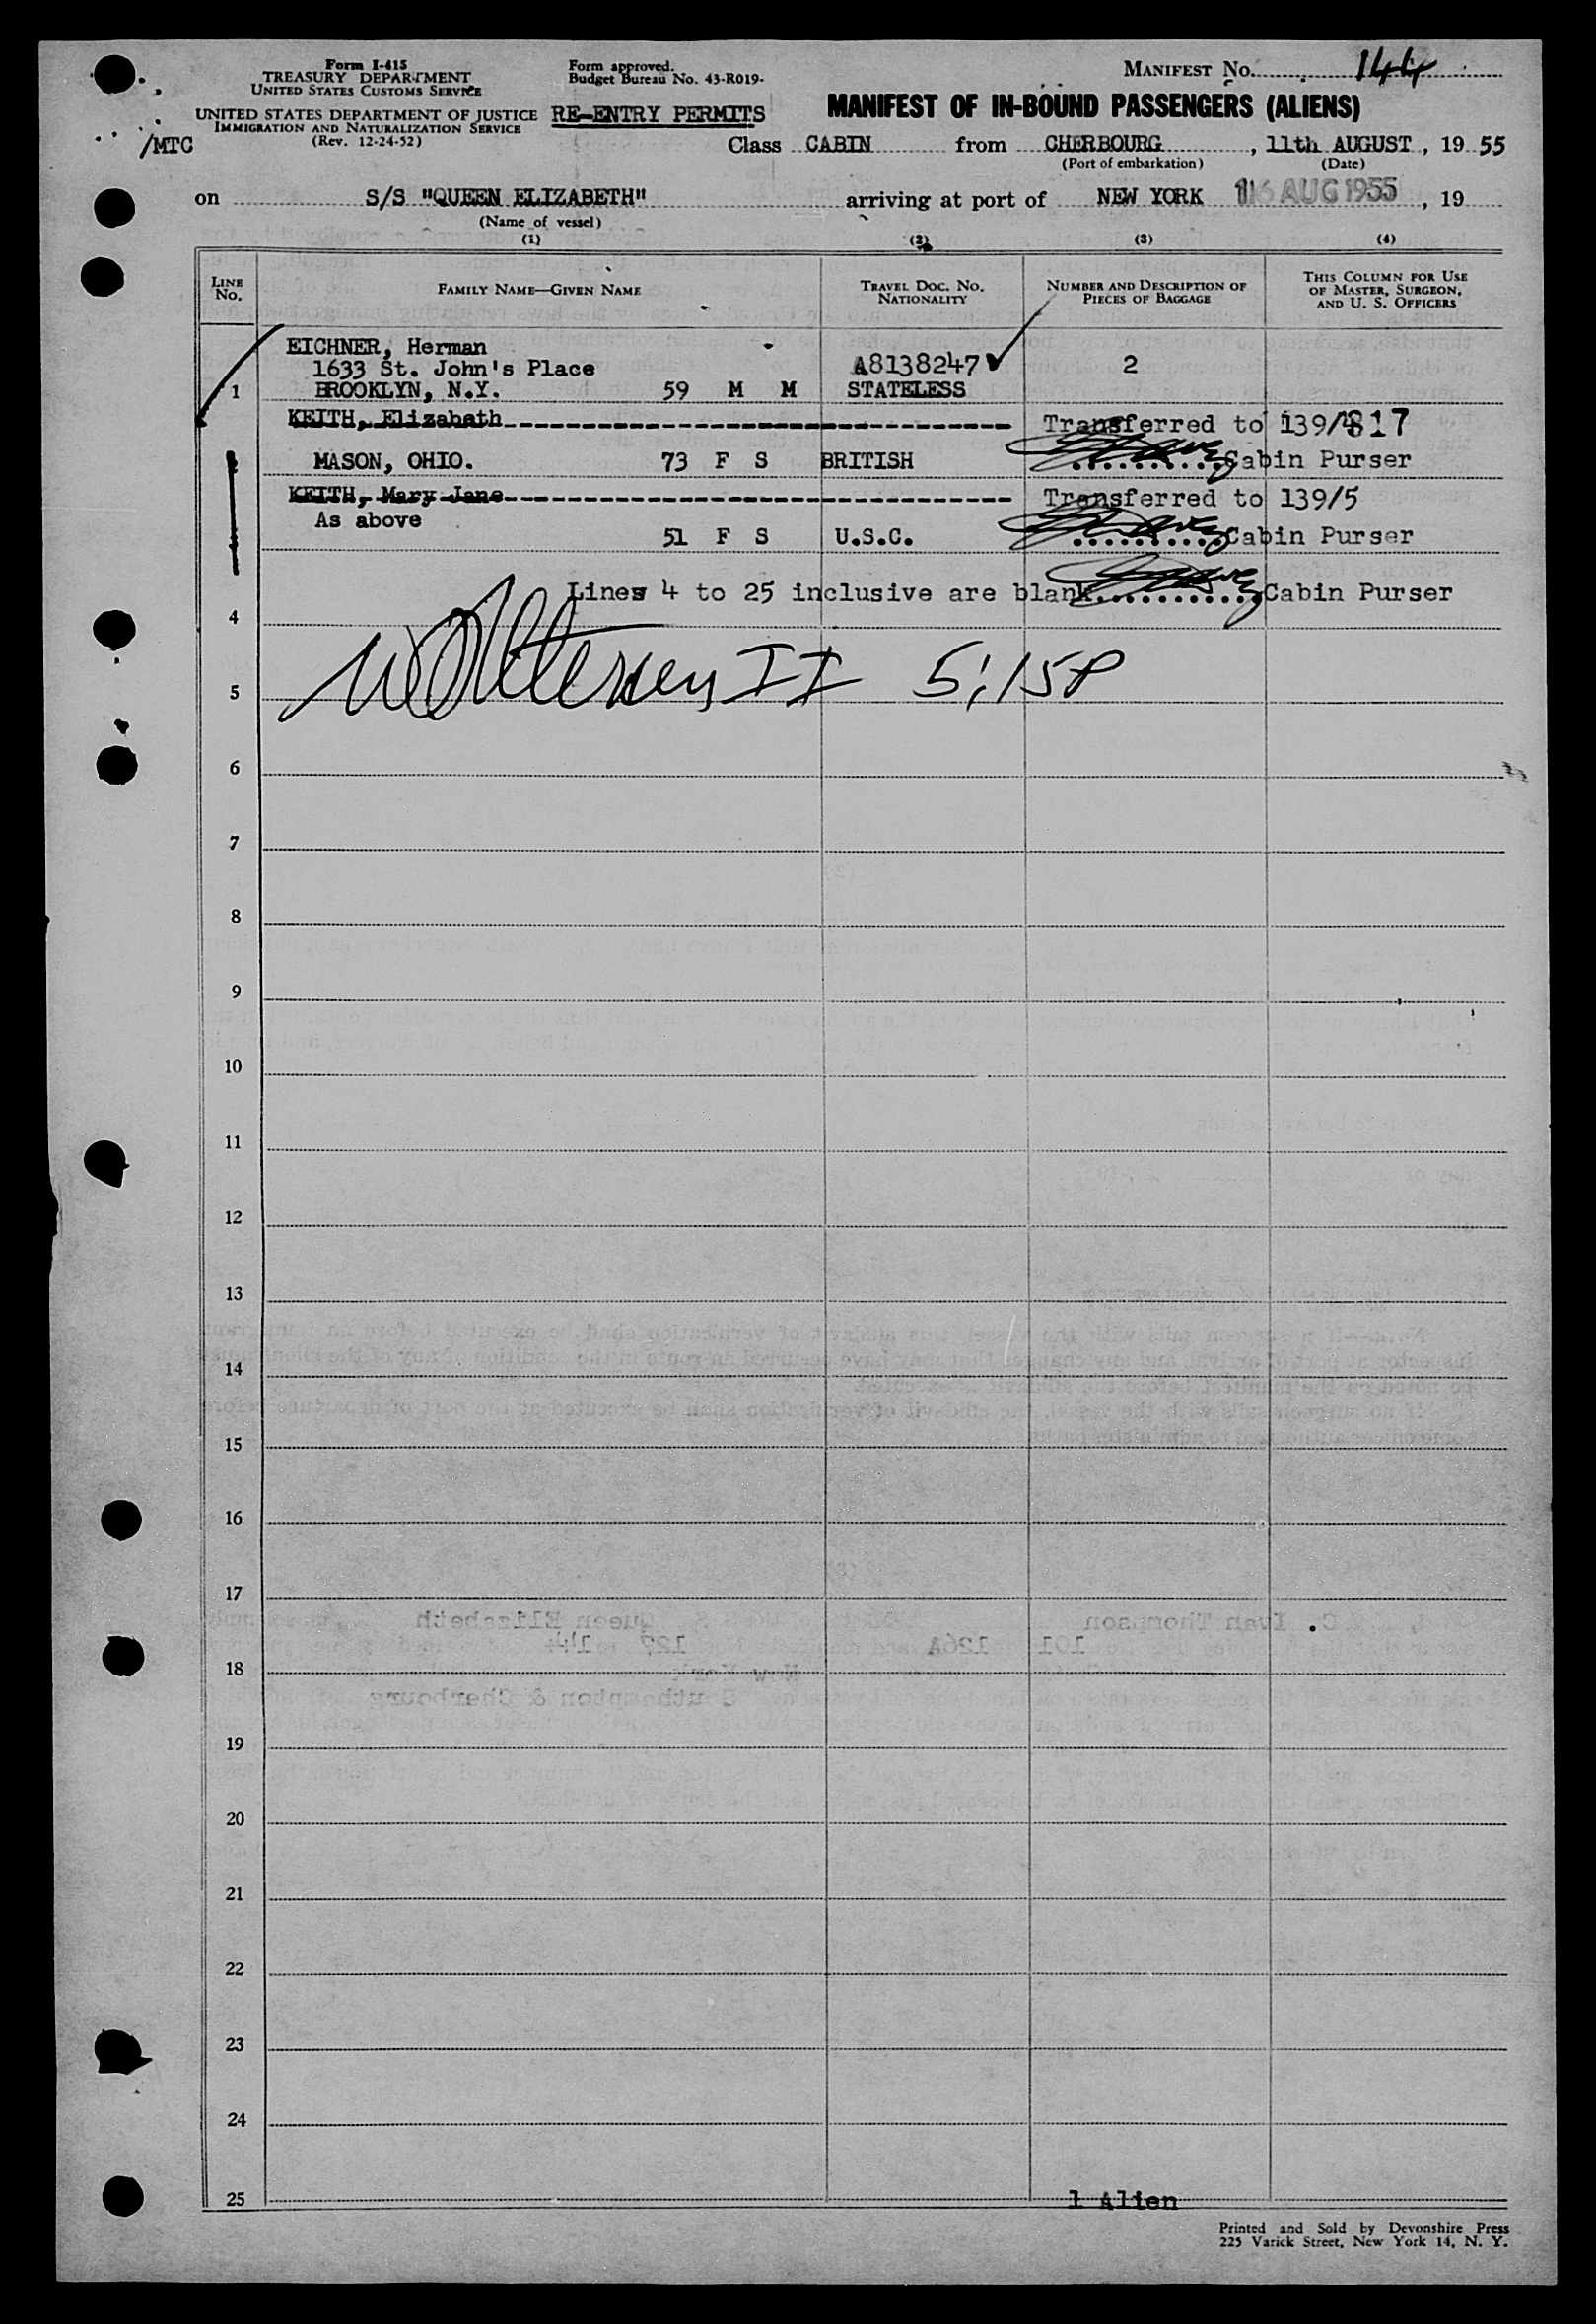 Form I-415
TREASURY DEPARTMENT
UNITED STATES CUSTOMS SERVICE
UNITED STATES DEPARTMENT OF JUSTICE
IMMIGRATION AND NATURALIZATION SERVICE
(Rev. 12-24-52)
/MTC
Form approved.
Budget Bureau No. 43-R019-
RE-ENTRY PERMITS
MANIFEST No. 144
MANIFEST OF IN-BOUND PASSENGERS (ALIENS)
Class CABIN from CHERBOURG, 11th AUGUST, 19 55
(Port of embarkation) (Date)
on S/S "QUEEN ELIZABETH" arriving at port of NEW YORK 16 AUG 1955, 19
(Name of vessel)
(1) (2) (3) (4)
LINE No. FAMILY NAME—GIVEN NAME TRAVEL DOC. NO. NATIONALITY NUMBER AND DESCRIPTION OF PIECES OF BAGGAGE THIS COLUMN FOR USE OF MASTER, SURGEON, AND U. S. OFFICERS
EICHNER, Herman
1633 St. John's Place A8138247 2
1 BROOKLYN, N.Y. 59 M M STATELESS
KEITH, Elizabeth Transferred to 139/
MASON, OHIO. 73 F S BRITISH Cabin Purser
KEITH, Mary Jane Transferred to 139/5
As above
51 F S U.S.C. Cabin Purser
Lines 4 to 25 inclusive are blank Cabin Purser
4
II 5:15P
5
6
7
8
9
10
11
12
13
14
15
16
17
18
19
20
21
22
23
24
25 1 Alien
Printed and Sold by Devonshire Press
225 Varick Street, New York 14, N. Y.